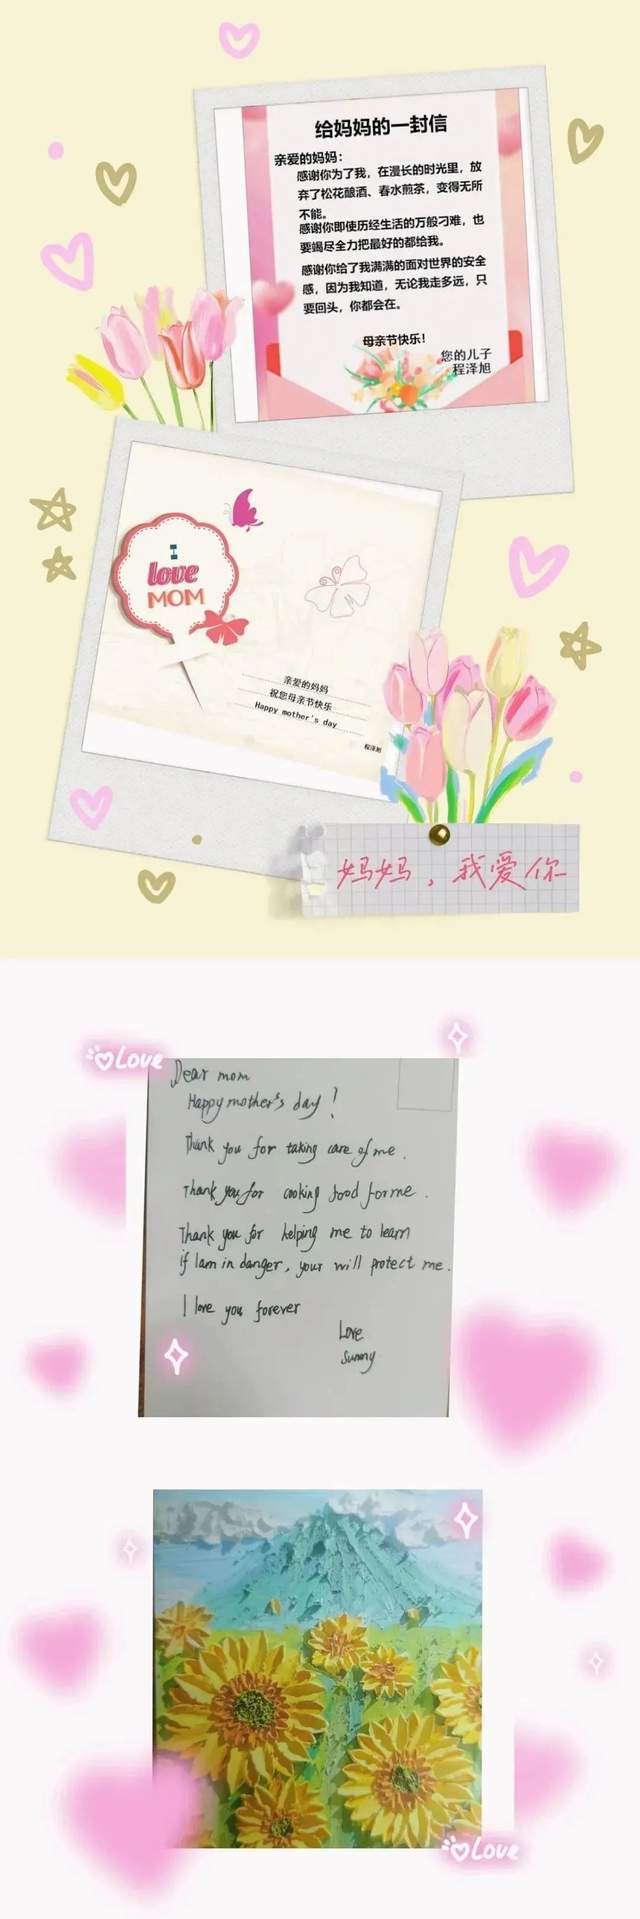 给妈妈的一封信
亲爱的妈妈：
感谢你为了我，在漫长的时光里，放
弃了松花酿酒、春水煎茶，变得无所
不能。
感谢你即使历经生活的万般刁难，也
要竭尽全力把最好的都给我。
感谢你给了我满满的面对世界的安全
感，因为我知道，无论我走多远，只
要回头，你都会在。
母亲节快乐！
您的儿子
程泽旭
I
love
MOM
亲爱的妈妈
祝您母亲节快乐
Happy mother's day
程泽旭
妈妈，我爱你
Love
Dear mom
Happy mother's day!
Thank you for taking care of me.
Thank you for cooking food for me.
Thank you for helping me to learn
if I am in danger, your will protect me.
I love you forever
Love
Sunny
Love